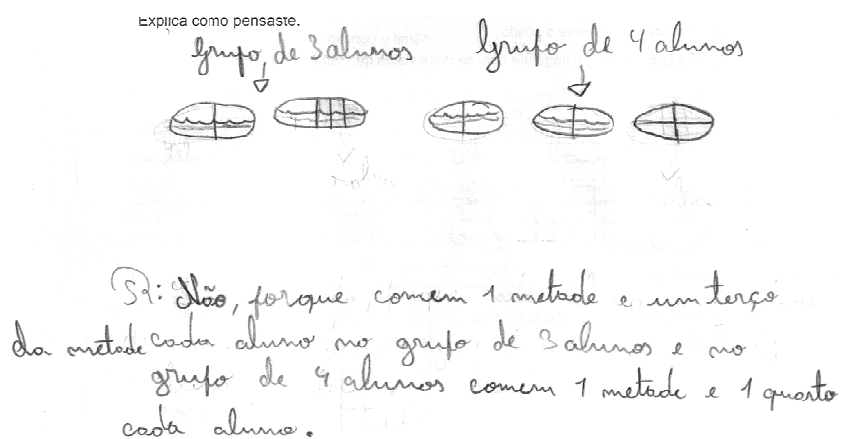 Explica como pensaste.
Grupo de 3 alunos
Grupo de 4 alunos
R: Não, porque comem 1 metade e um terço
da metade cada aluno no grupo de 3 alunos e no
grupo de 4 alunos comem 1 metade e 1 quarto
cada aluno.